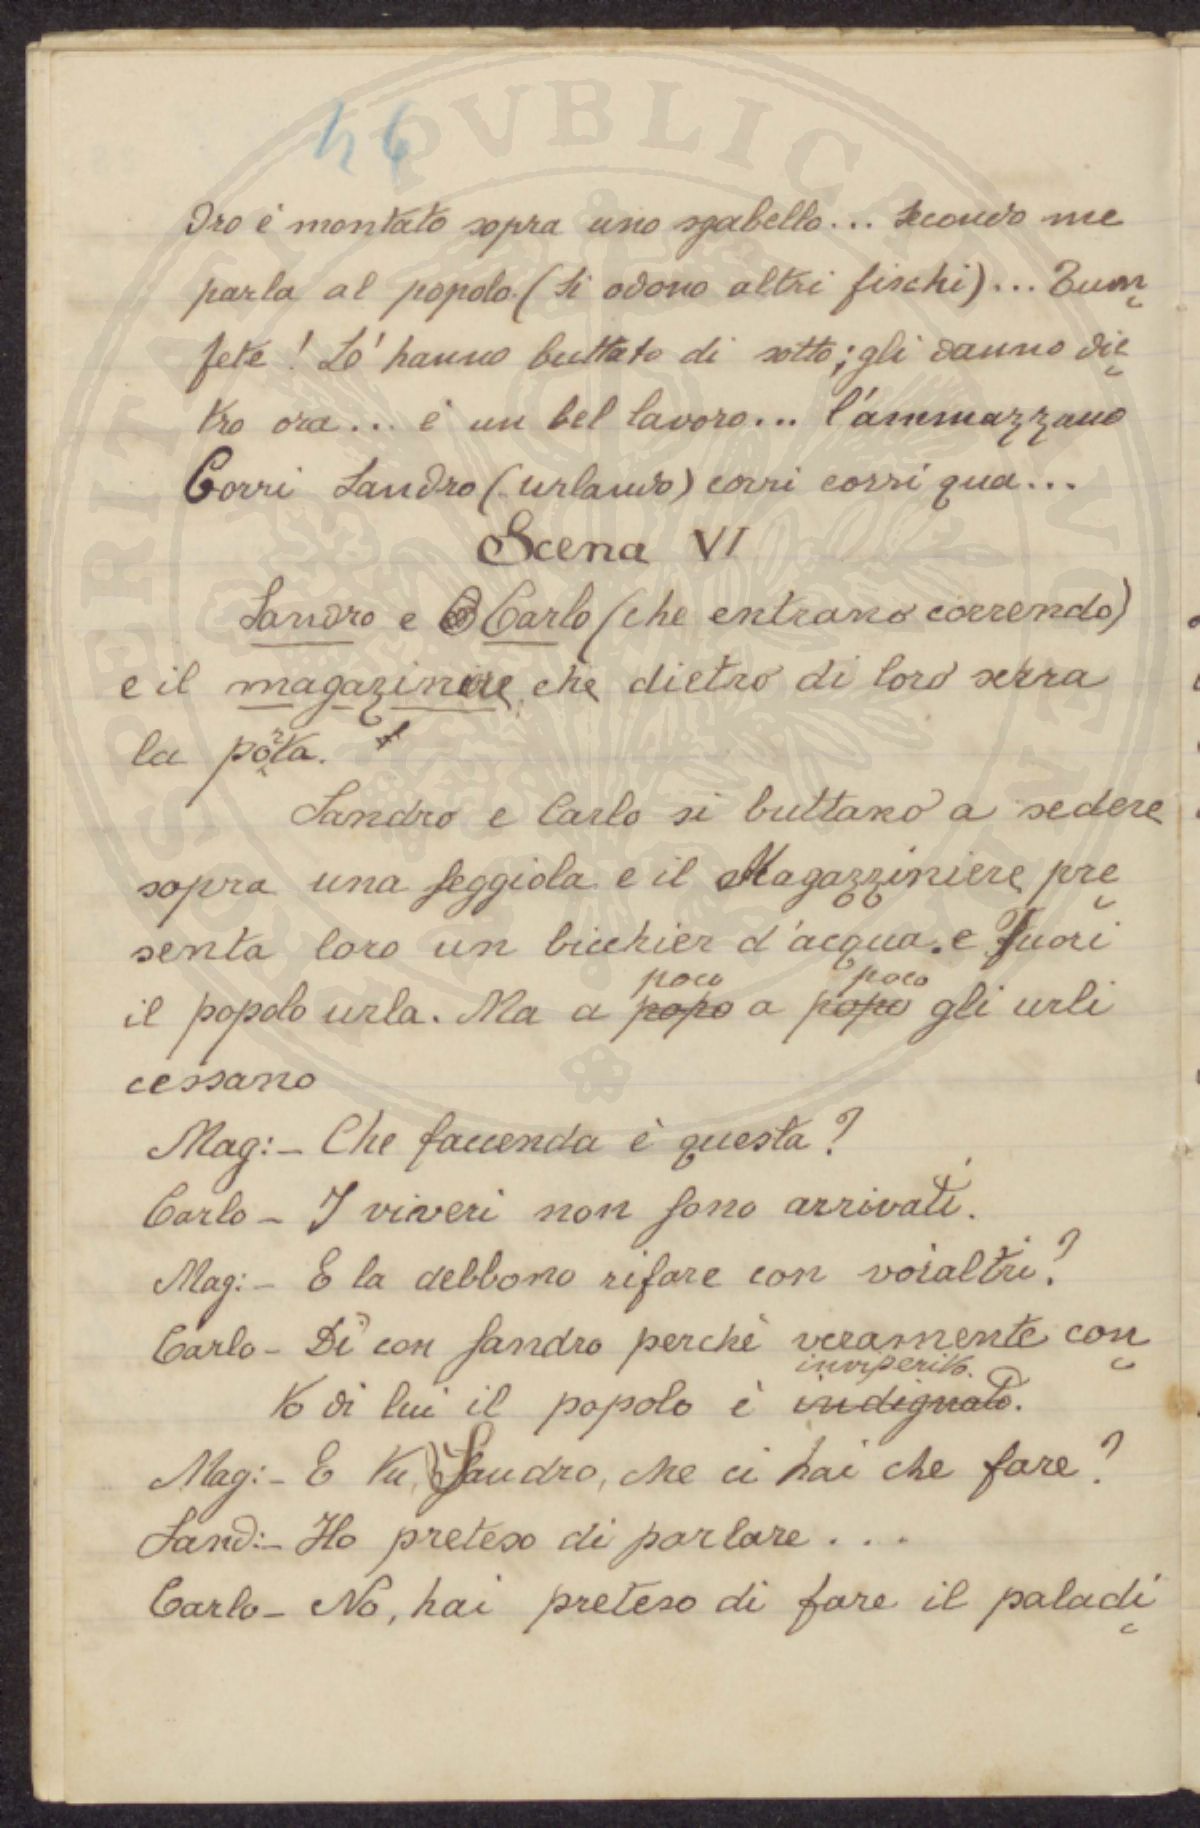 46
dro è montato sopra uno sgabello... secondo me
parla al popolo. (Si odono altri fischi)... Tum
fete! Lo' hanno buttato di sotto; gli danno die
tro ora... è un bel lavoro... l'ammazzano
Corri Sandro (urlando) corri corri qua...
Scena VI
Sandro e Carlo (che entrano correndo)
e il magaziniere che dietro di loro serra
la porta.
Sandro e Carlo si buttano a sedere
sopra una seggiola e il Magazziniere pre
senta loro un bicchier d'acqua. e Fuori
poco poco
il popolo urla. Ma a popo a popo gli urli
cessano
Mag:- Che faccenda è questa?
Carlo - I viveri non sono arrivati.
Mag:- E la debbono rifare con voialtri?
Carlo - Dì con Sandro perchè veramente con
inviperito.
to di lui il popolo è indignato.
Mag:- E tu, Sandro, che ci hai che fare?
Sand:- Ho preteso di parlare...
Carlo - No, hai preteso di fare il paladi